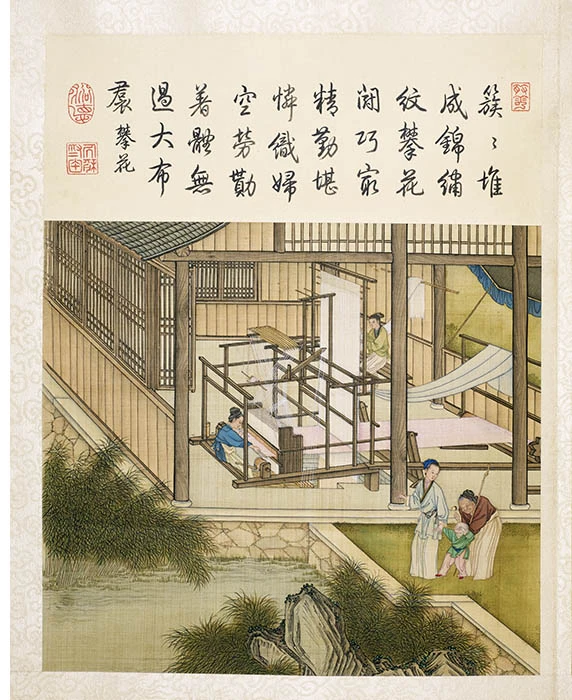 簇〻堆
成錦繡
紋攀花
閗巧㝡
精勤堪
憐織婦
空勞勩
著體無
過大布
裠攀花